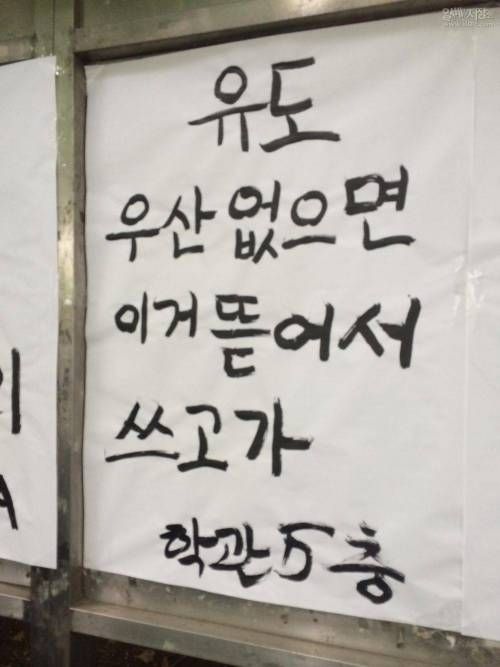 유도
우산 없으면
이거 뜯어서
쓰고가
학관 5층